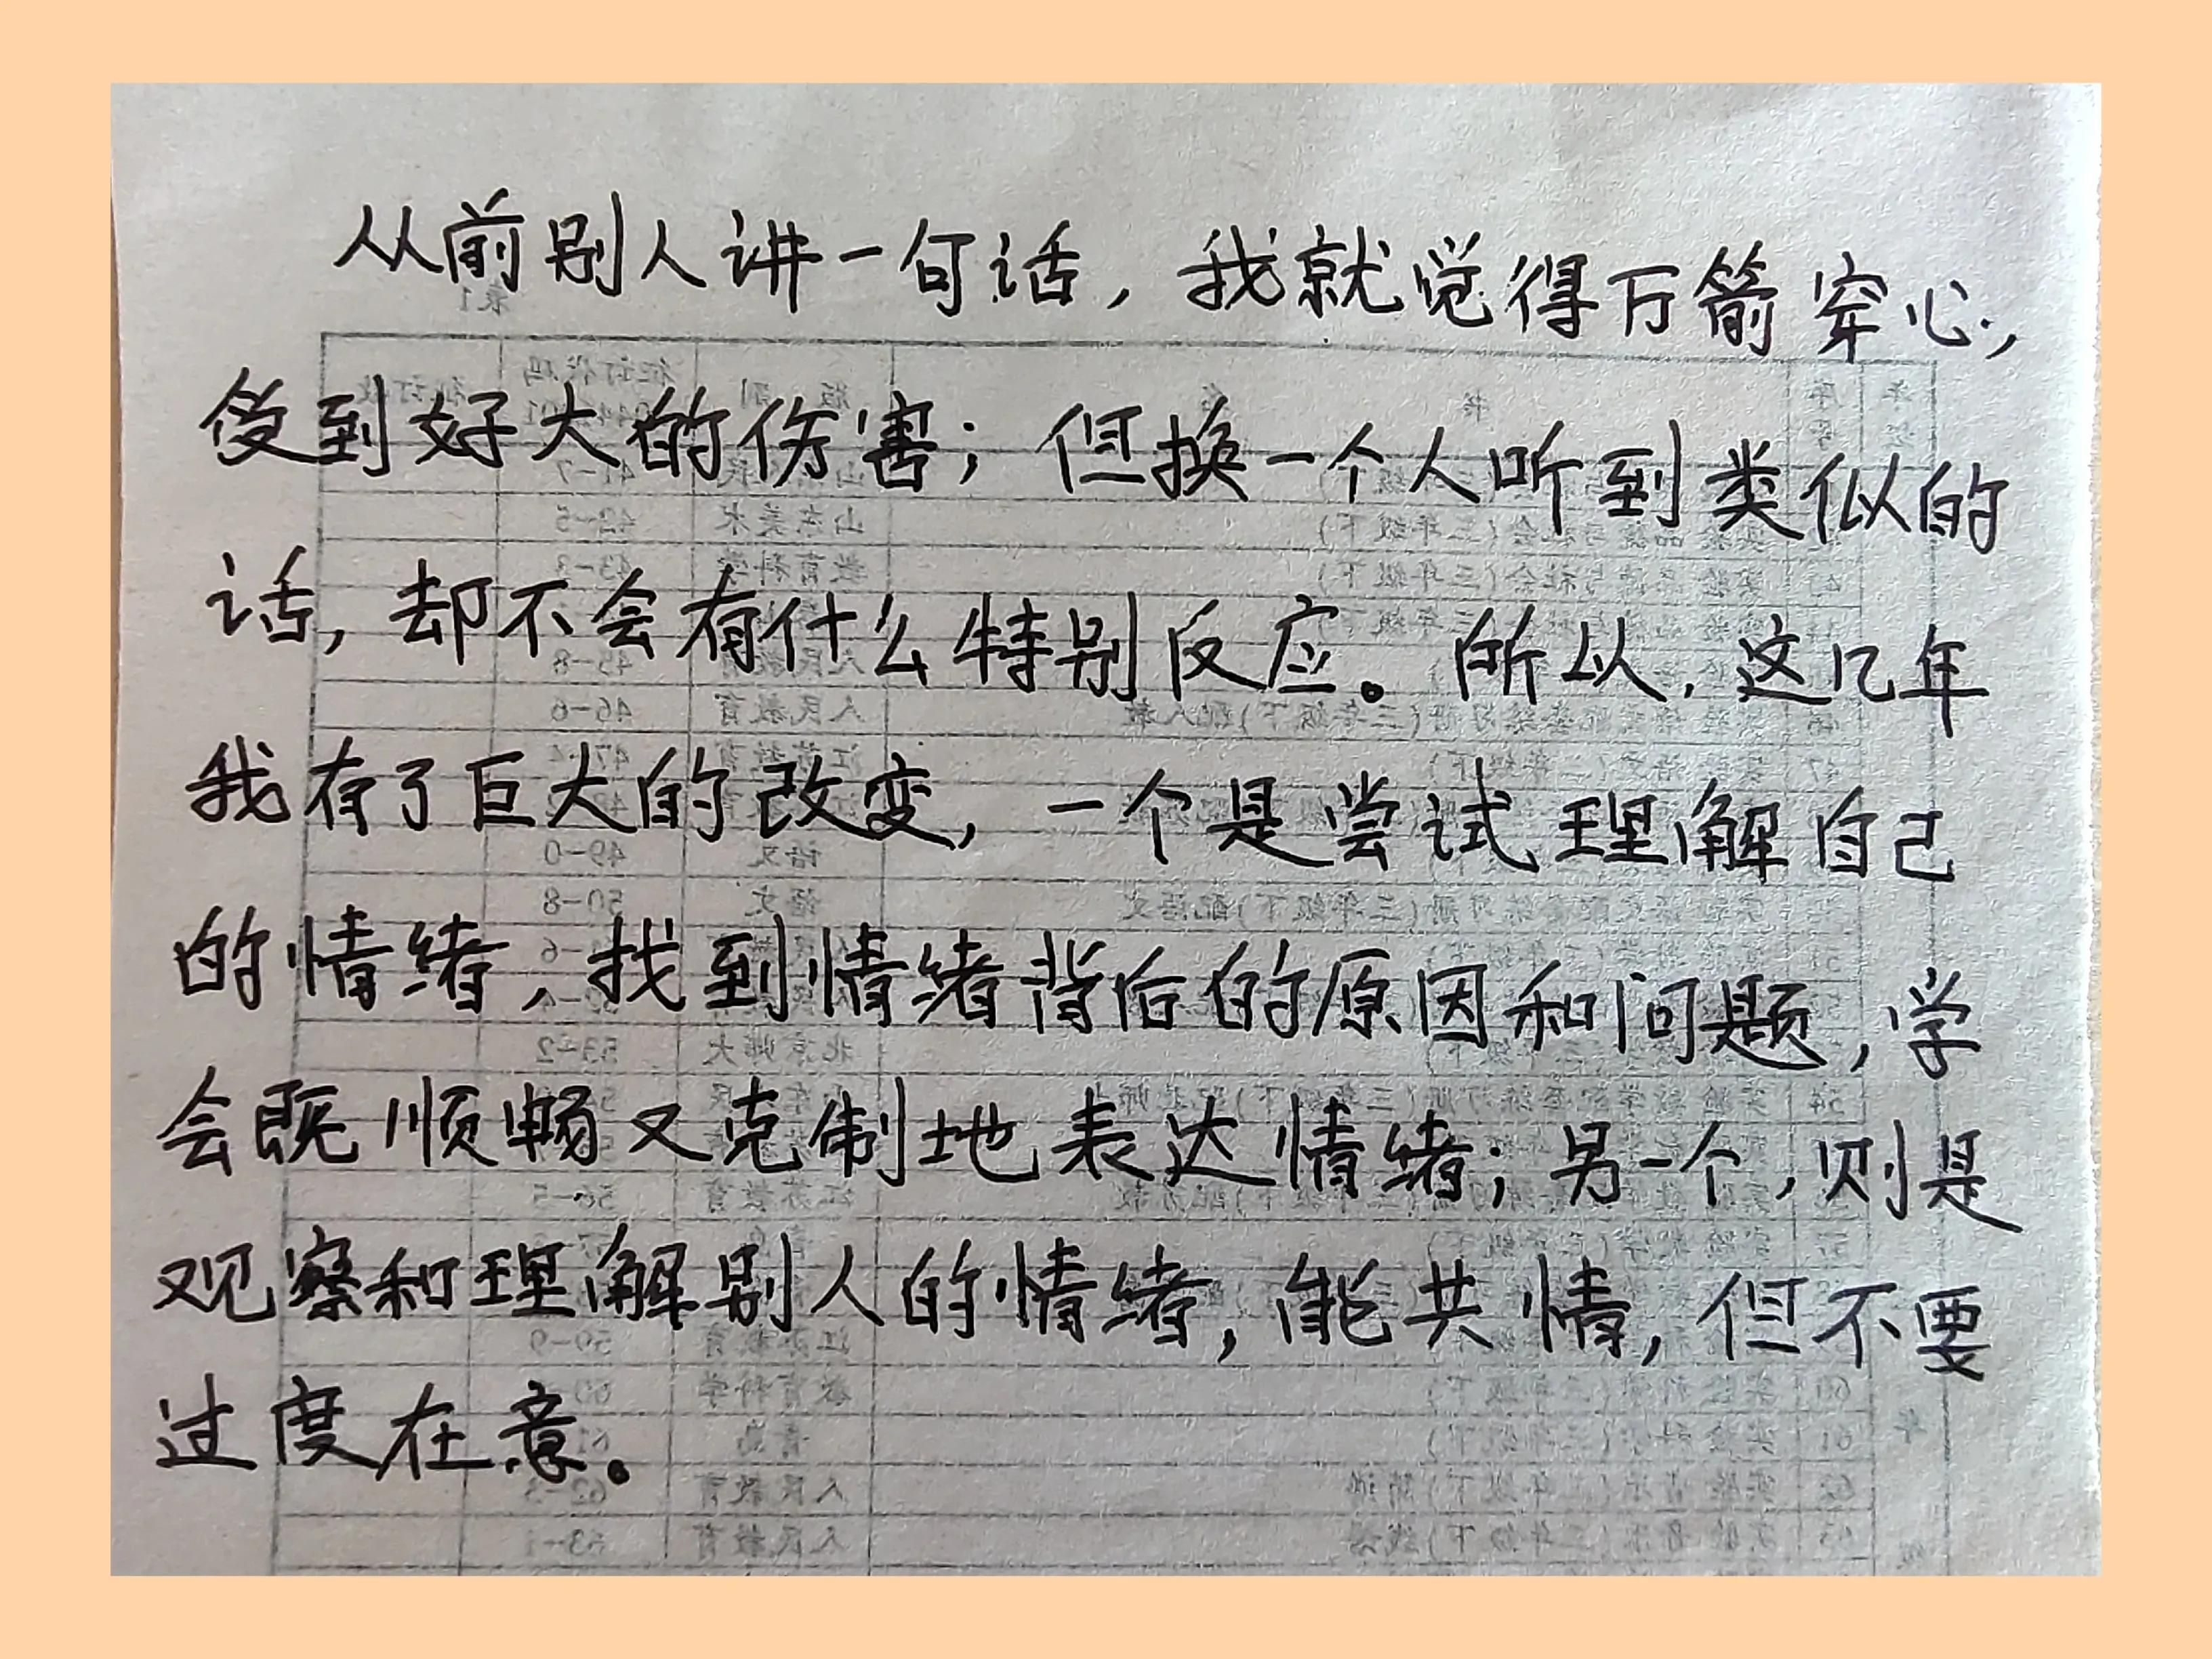 从前别人讲一句话，我就觉得万箭穿心，
受到好大的伤害；但换一个人听到类似的
话，却不会有什么特别反应。所以，这几年
我有了巨大的改变，一个是尝试理解自己
的情绪，找到情绪背后的原因和问题，学
会既顺畅又克制地表达情绪；另一个，则是
观察和理解别人的情绪，能共情，但不要
过度在意。